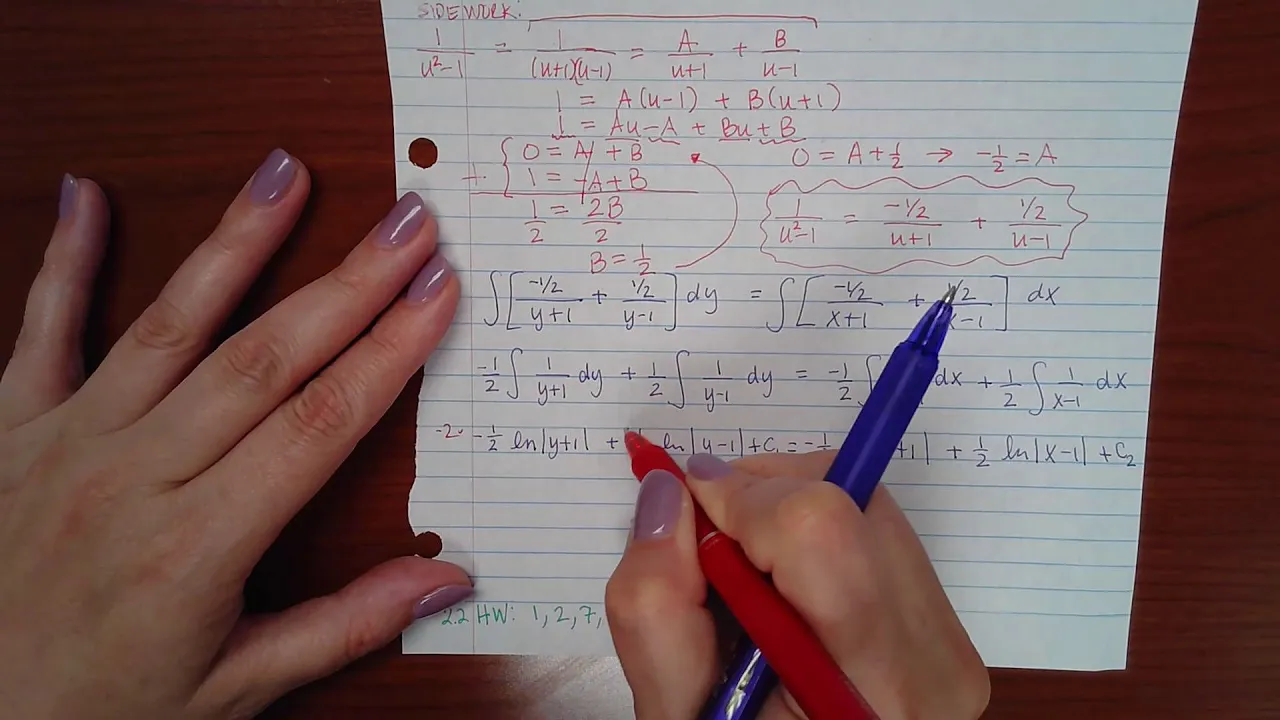 SIDEWORK:
1/(u²-1) = 1/((u+1)(u-1)) = A/(u+1) + B/(u-1)
1 = A(u-1) + B(u+1)
1 = Au-A + Bu+B
0 = A + B
+. 1 = -A+B
1/2 = 2B/2
B = 1/2
0 = A + 1/2 → -1/2 = A
1/(u²-1) = (-1/2)/(u+1) + (1/2)/(u-1)
∫[(-1/2)/(y+1) + (1/2)/(y-1)] dy = ∫[(-1/2)/(x+1) + 1/2 x-1)] dx
-1/2 ∫ 1/(y+1) dy + 1/2 ∫ 1/(y-1) dy = -1/2 ∫ dx + 1/2 ∫ 1/(x-1) dx
-2· -1/2 ln|y+1| + ln|y-1| + C₁ = -1/ +1| + 1/2 ln|x-1| + C₂
2.2 HW: 1, 2, 7,